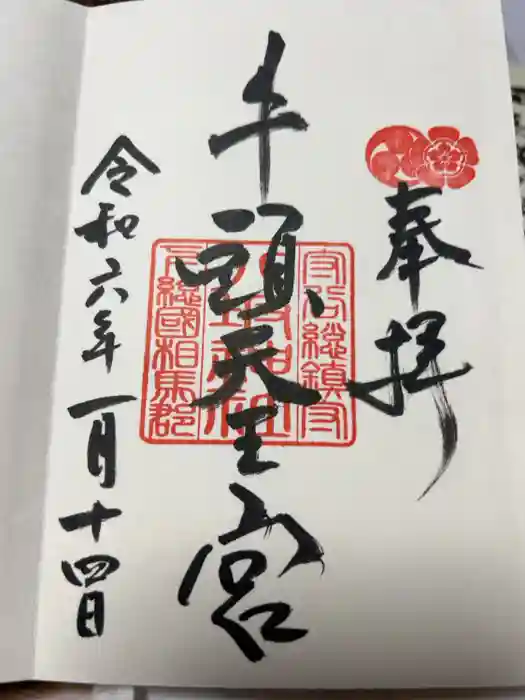 奉拝
牛頭天王宮
守谷総鎮守
八坂神社
下総國相馬郡
令和六年一月十四日